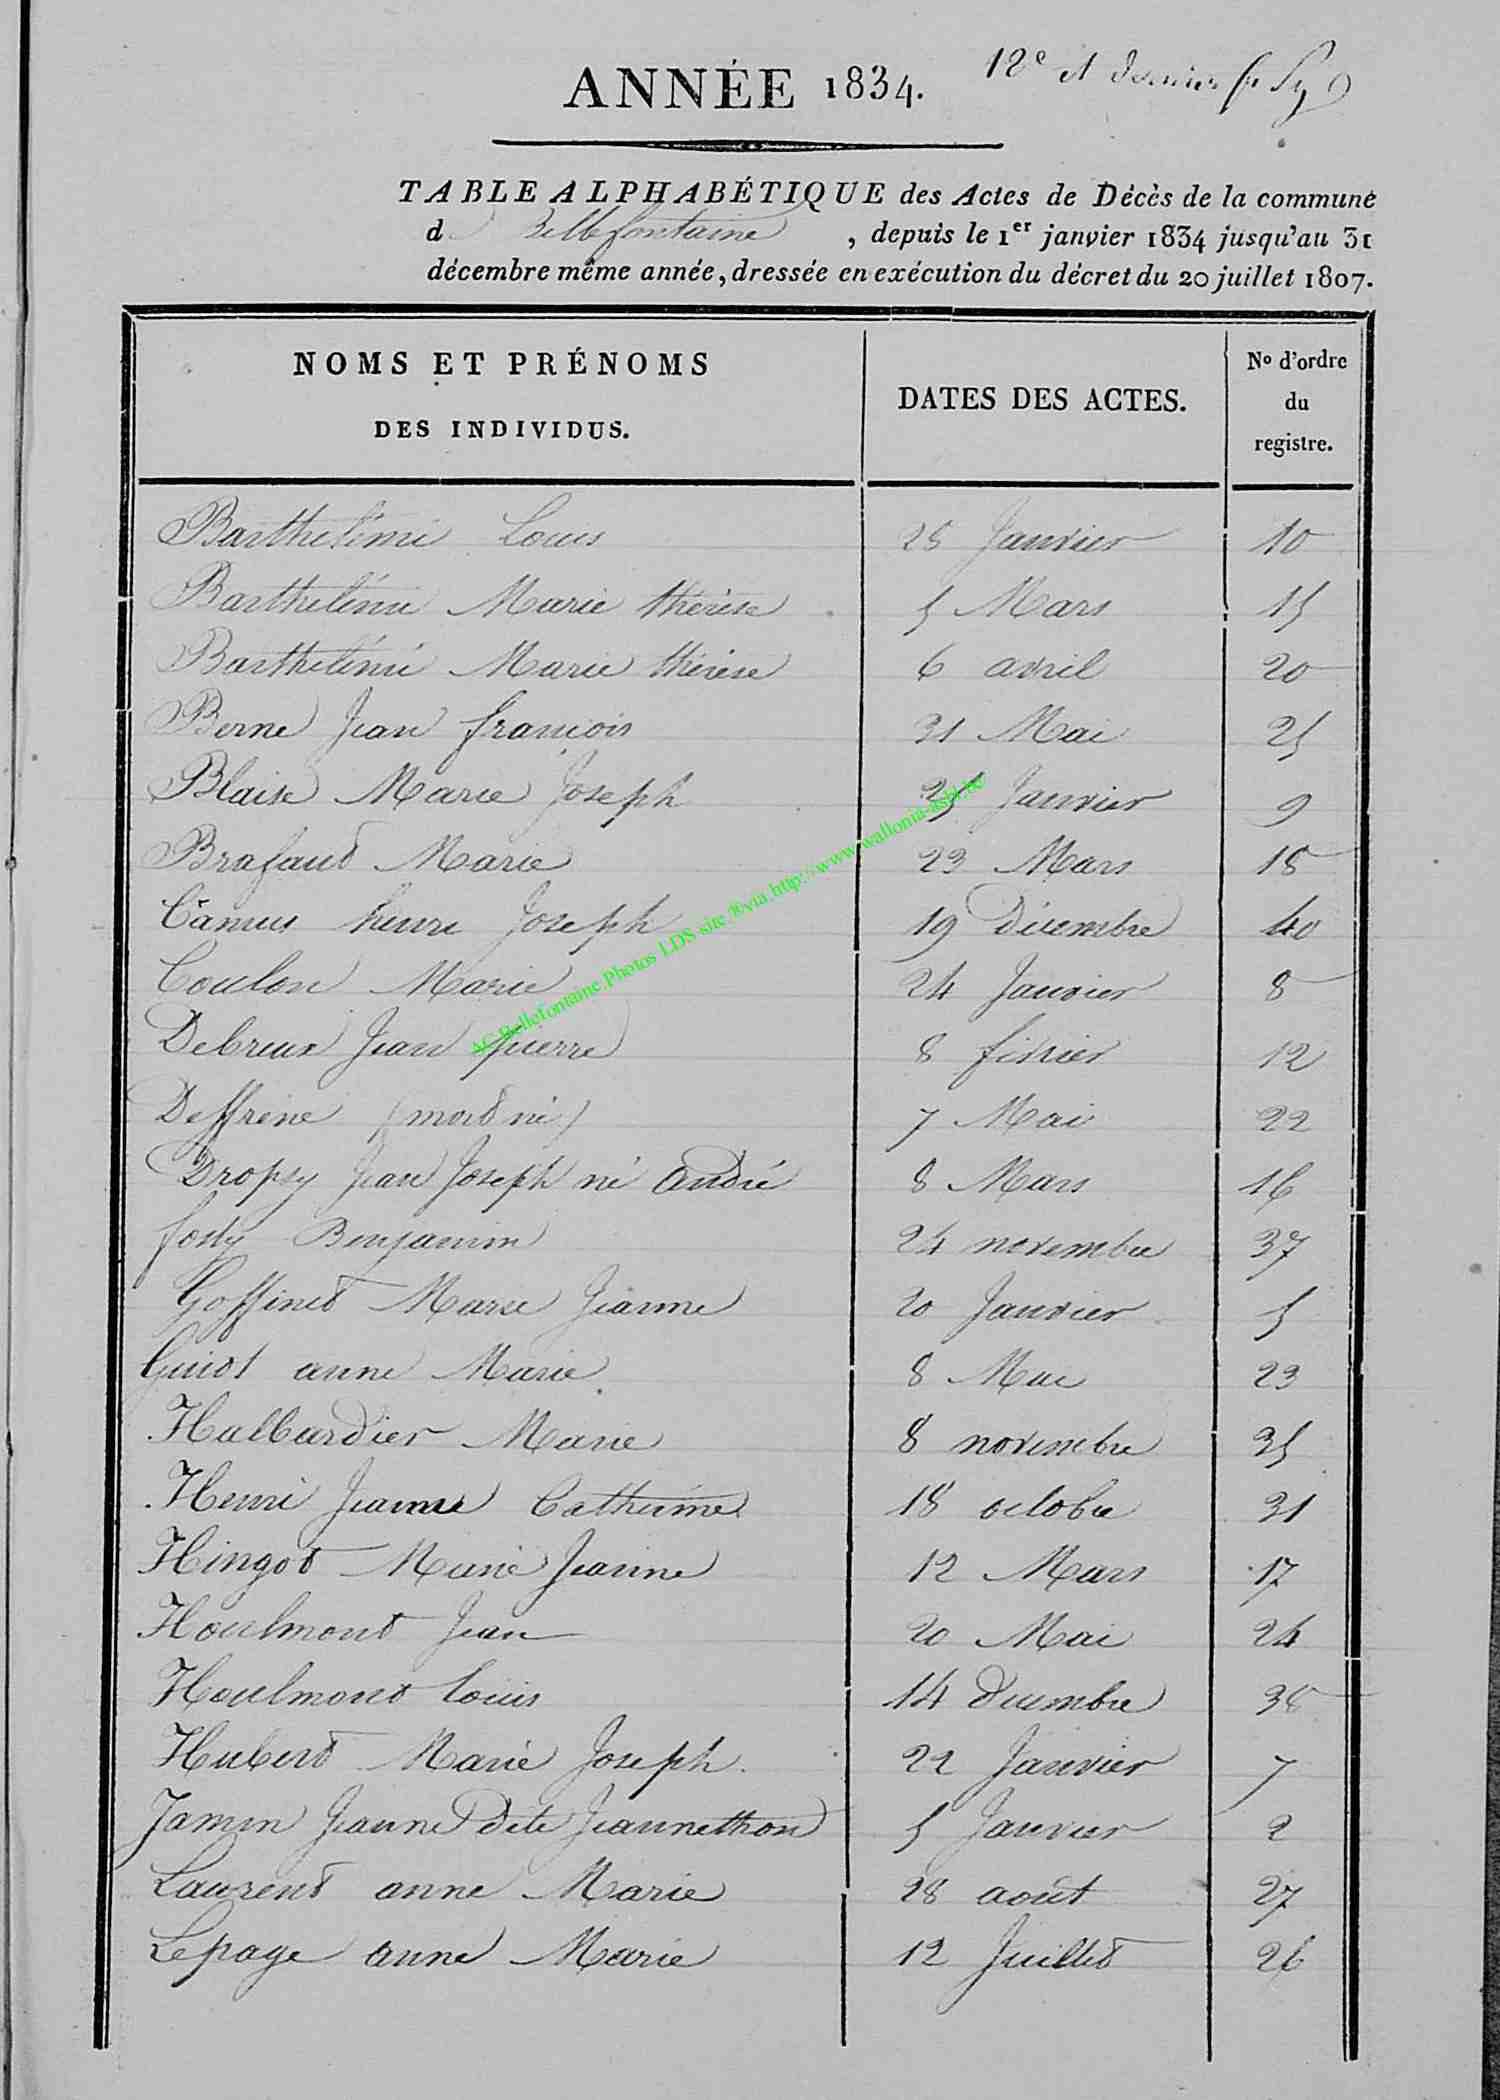 ANNÉE 1834. 12e et dernier f
TABLE ALPHABÉTIQUE des Actes de Décès de la commune
d Bellefontaine , depuis le 1er janvier 1834 jusqu'au 31
décembre même année, dressée en exécution du décret du 20 juillet 1807.
NOMS ET PRÉNOMS
DES INDIVIDUS.
DATES DES ACTES.
No d'ordre
du
registre.
Barthelémi Louis 25 Janvier 10
Barthelémi Marie thérèse 5 Mars 15
Barthelémi Marie thérèse 6 avril 20
Berne Jean françois 31 Mai 25
Blaise Marie Joseph 25 Janvier 9
Brafaut Marie 23 Mars 18
Camus henri Joseph 19 Décembre 40
Coulon Marie 24 Janvier 8
Debreux Jean pierre 8 février 12
Deffrene (mort né) 7 Mai 22
Dropsy Jean Joseph né André 8 Mars 16
fosty Benjamin 24 novembre 37
Goffinet Marie Jeanne 20 Janvier 5
Guiot anne Marie 8 Mai 23
Halbardier Marie 8 novembre 35
Henri Jeanne Catherine 18 octobre 31
Hingot Marie Jeanne 12 Mars 17
Houlmont Jean 20 Mai 24
Houlmont Louis 14 Décembre 38
Hubert Marie Joseph 22 Janvier 7
Jamin Jeanne Dite Jeannethon 5 Janvier 2
Laurent anne Marie 28 août 27
Lepage anne Marie 12 Juillet 26
AC Bellefontaine.Photos LDS site & via http://www.wallonia-asbl.be